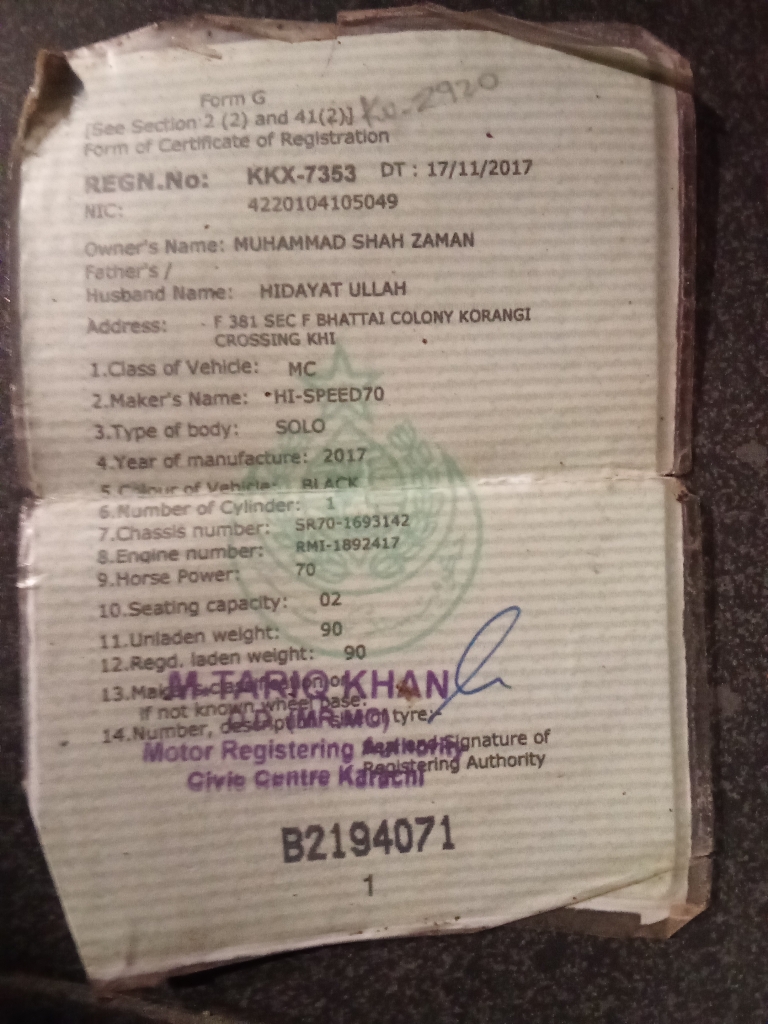 Form G
[See Section 2 (2) and 41(2)]
Form of Certificate of Registration
REGN.No: KKX-7353 DT : 17/11/2017
NIC: 4220104105049
Owner's Name: MUHAMMAD SHAH ZAMAN
Father's /
Husband Name: HIDAYAT ULLAH
Address: F 381 SEC F BHATTAI COLONY KORANGI
CROSSING KHI
1.Class of Vehicle: MC
2.Maker's Name: HI-SPEED70
3.Type of body: SOLO
4.Year of manufacture: 2017
5 Colour of Vehicle: BLACK
6.Number of Cylinder: 1
7.Chassis number: SR70-1693142
8.Engine number: RMI-1892417
9.Horse Power: 70
10.Seating capacity: 02
11.Unladen weight: 90
12.Regd. laden weight: 90
13.
M.TARIQ KHAN
if not known wheel base.
14.Number, tyre
Motor Registering Authority
Signature of
Civic Centre Karachi
Registering Authority
B2194071
1